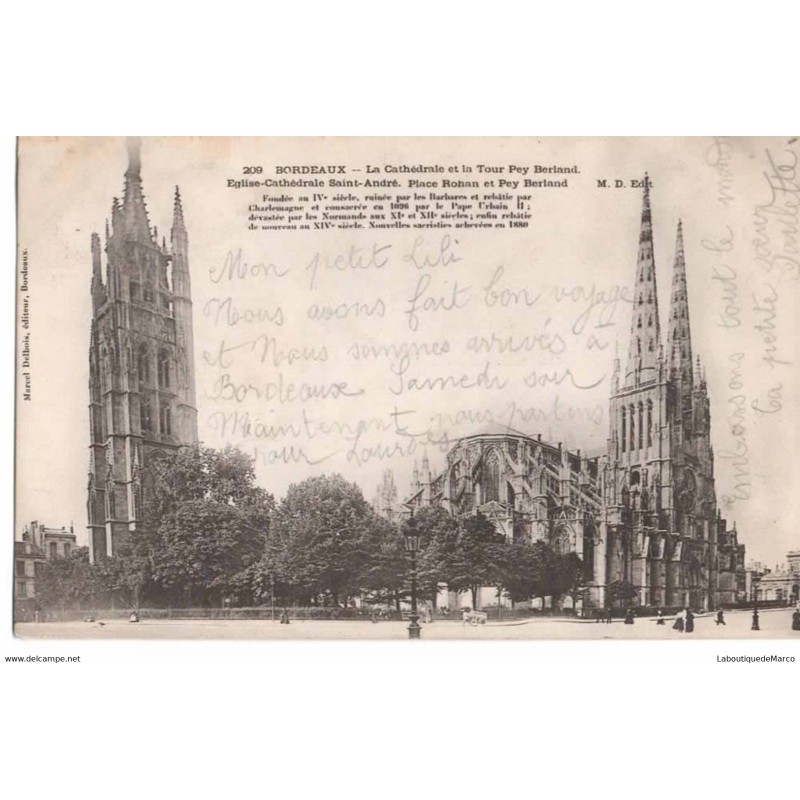 209 BORDEAUX -- La Cathédrale et la Tour Pey Berland.
Eglise-Cathédrale Saint-André. Place Rohan et Pey Berland
M. D. Edit
Fondée au IVe siècle, ruinée par les Barbares et rebâtie par
Charlemagne et consacrée en 1096 par le Pape Urbain II ;
dévastée par les Normands aux XIe et XIIe siècles ; enfin rebâtie
de nouveau au XIVe siècle. Nouvelles sacristies achevées en 1880
Marcel Delbois, éditeur, Bordeaux.
Mon petit Lili
Nous avons fait bon voyage
et Nous sommes arrivés à
Bordeaux Samedi soir
Maintenant nous partons
pour Lourdes
embrassons tout le monde
ta petite sœur
Paulette
www.delcampe.net
LaboutiquedeMarco